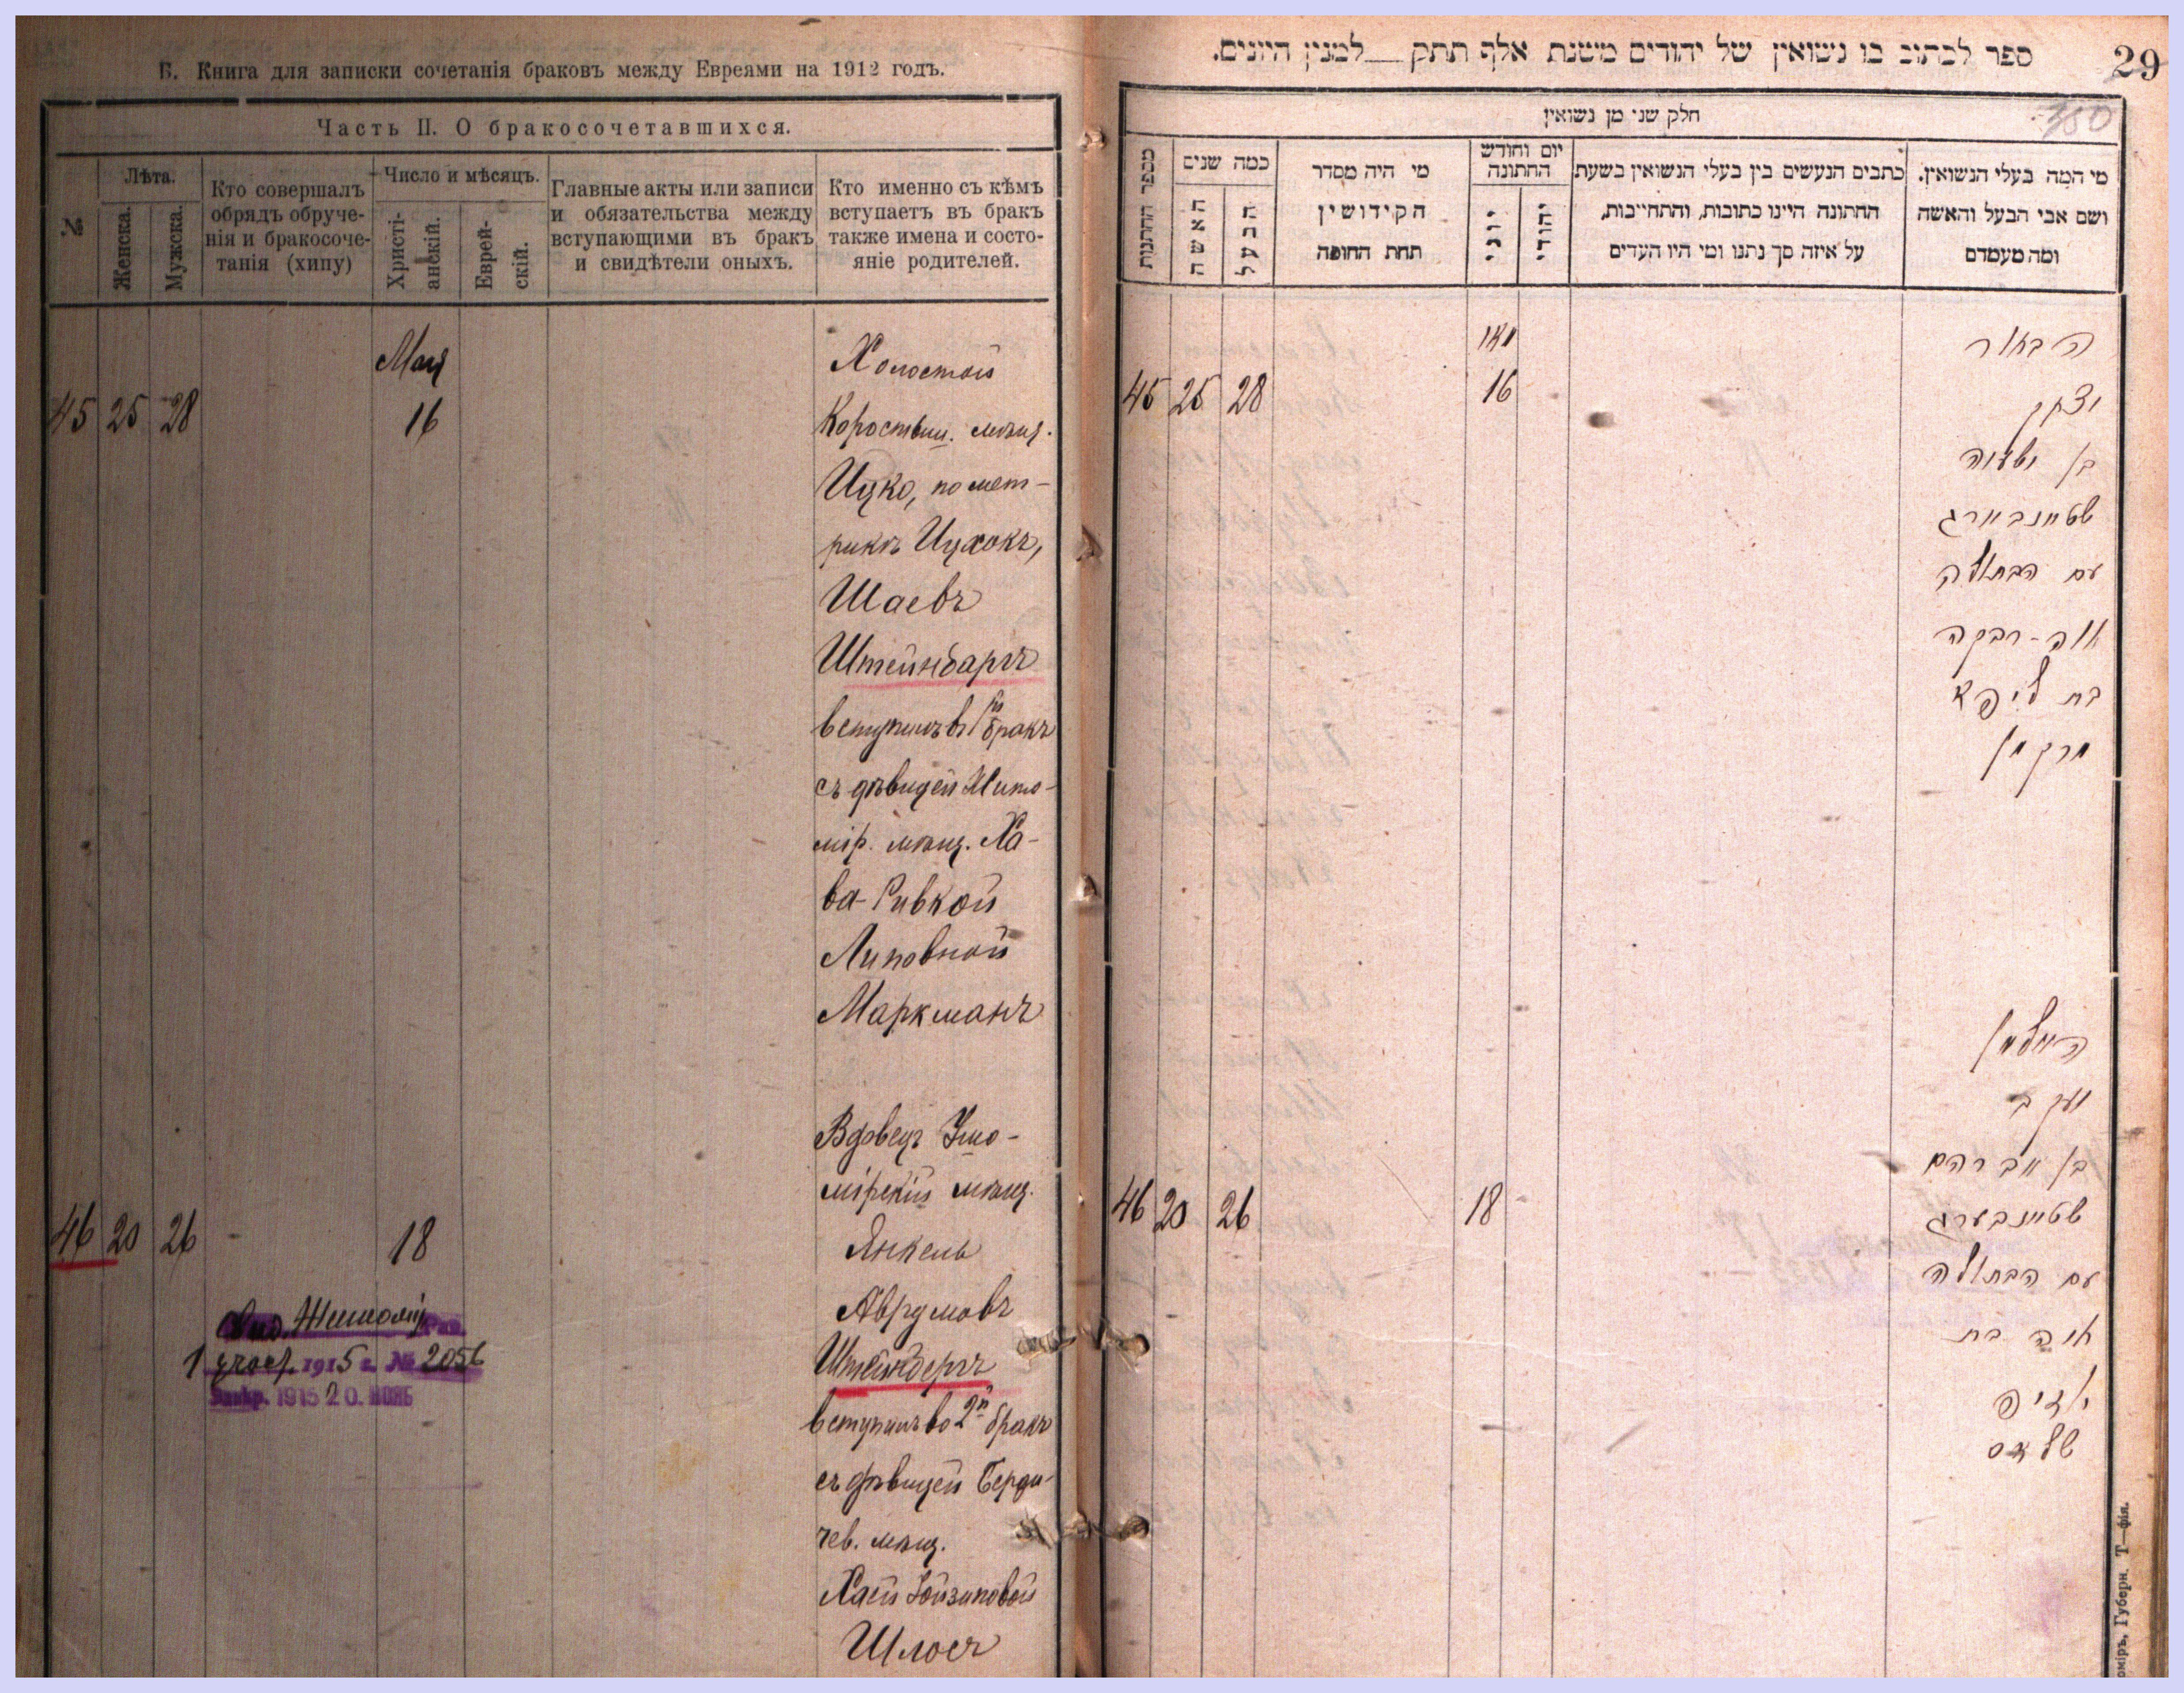 Б. Книга для записки сочетанія браковъ между Евреями на 1912 годъ.
Часть II. О бракосочетавшихся.
№
Лѣта.
Женска.
Мужска.
Кто совершалъ
обрядъ обруче-
нія и бракосоче-
танія (хипу)
Число и мѣсяцъ.
Христі-
анскій.
Еврей-
скій.
Главные акты или записи
и обязательства между
вступающими въ бракъ
и свидѣтели оныхъ.
Кто именно съ кѣмъ
вступаетъ въ бракъ
также имена и состо-
яніе родителей.
Мая
45 25 28 16
Холостой
Коростыш. мѣщ.
Ицко, по мет-
рикѣ Ицхокъ,
Шаевъ
Штейнбаргъ
вступилъ въ 1й бракъ
съ дѣвицей Жито-
мір. мѣщ. Ха-
ва-Ривкой
Липовной
Маркманъ
46 20 26 18
Вдовецъ
мірскій мѣщ.
Янкель
Аврумовъ
Штейнбергъ
вступилъ во 2й бракъ
съ дѣвицей Берди-
чев. мѣщ.
Хаей Іойзиповой
Шлосъ
Житомір
1 1915 г. № 2056
1915 20. НОЯБ
ספר לכתוב בו נשואין של יהודים משנת אלף תתק — למנין היונים.
29
380
חלק שני מן נשואין
מספר החתונות
כמה שנים
האשה
הבעל
מי היה מסדר
הקידושין
תחת החופה
יום וחודש
החתונה
יוני
יהודי
כתבים הנעשים בין בעלי הנשואין בשעת
החתונה היינו כתובות, והתחייבות,
על איזה סך נתנו ומי היו העדים
מי המה בעלי הנשואין.
ושם אבי הבעל והאשה
ומה מעמדם
מאי
45 25 28 16
הבחור
יצחק
בן ישעיה
שטיינבארג
עם הבתולה
חוה-רבקה
בת ליפא
מרקמן
46 20 26 18
האלמן
יעקב
בן אברהם
שטיינבערג
עם הבתולה
חיה בת
שלאס
оміръ, Губерн. Т—фія.